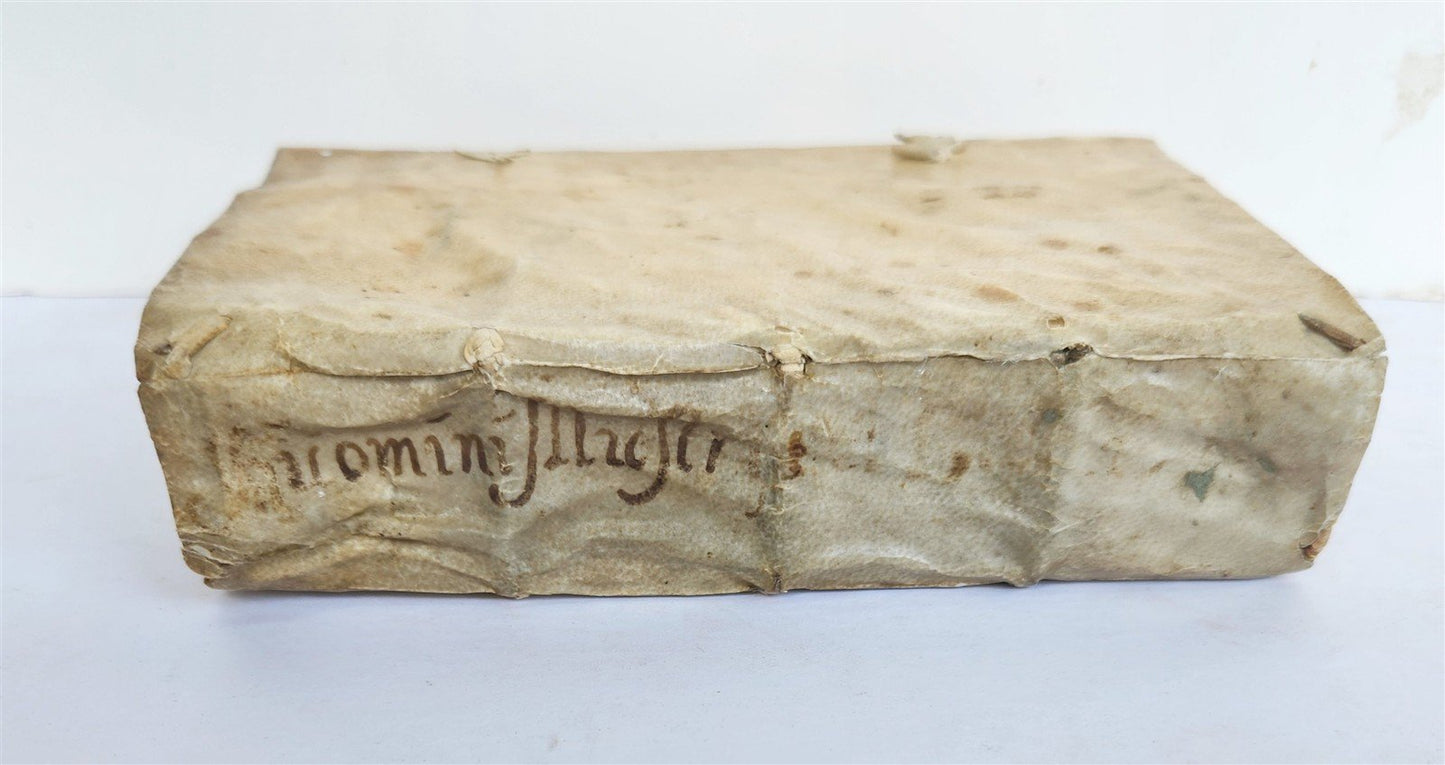 uomini Illustri